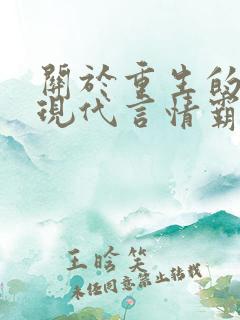 關於重生的
現代言情霸
王晗笑
未经同意禁止转载